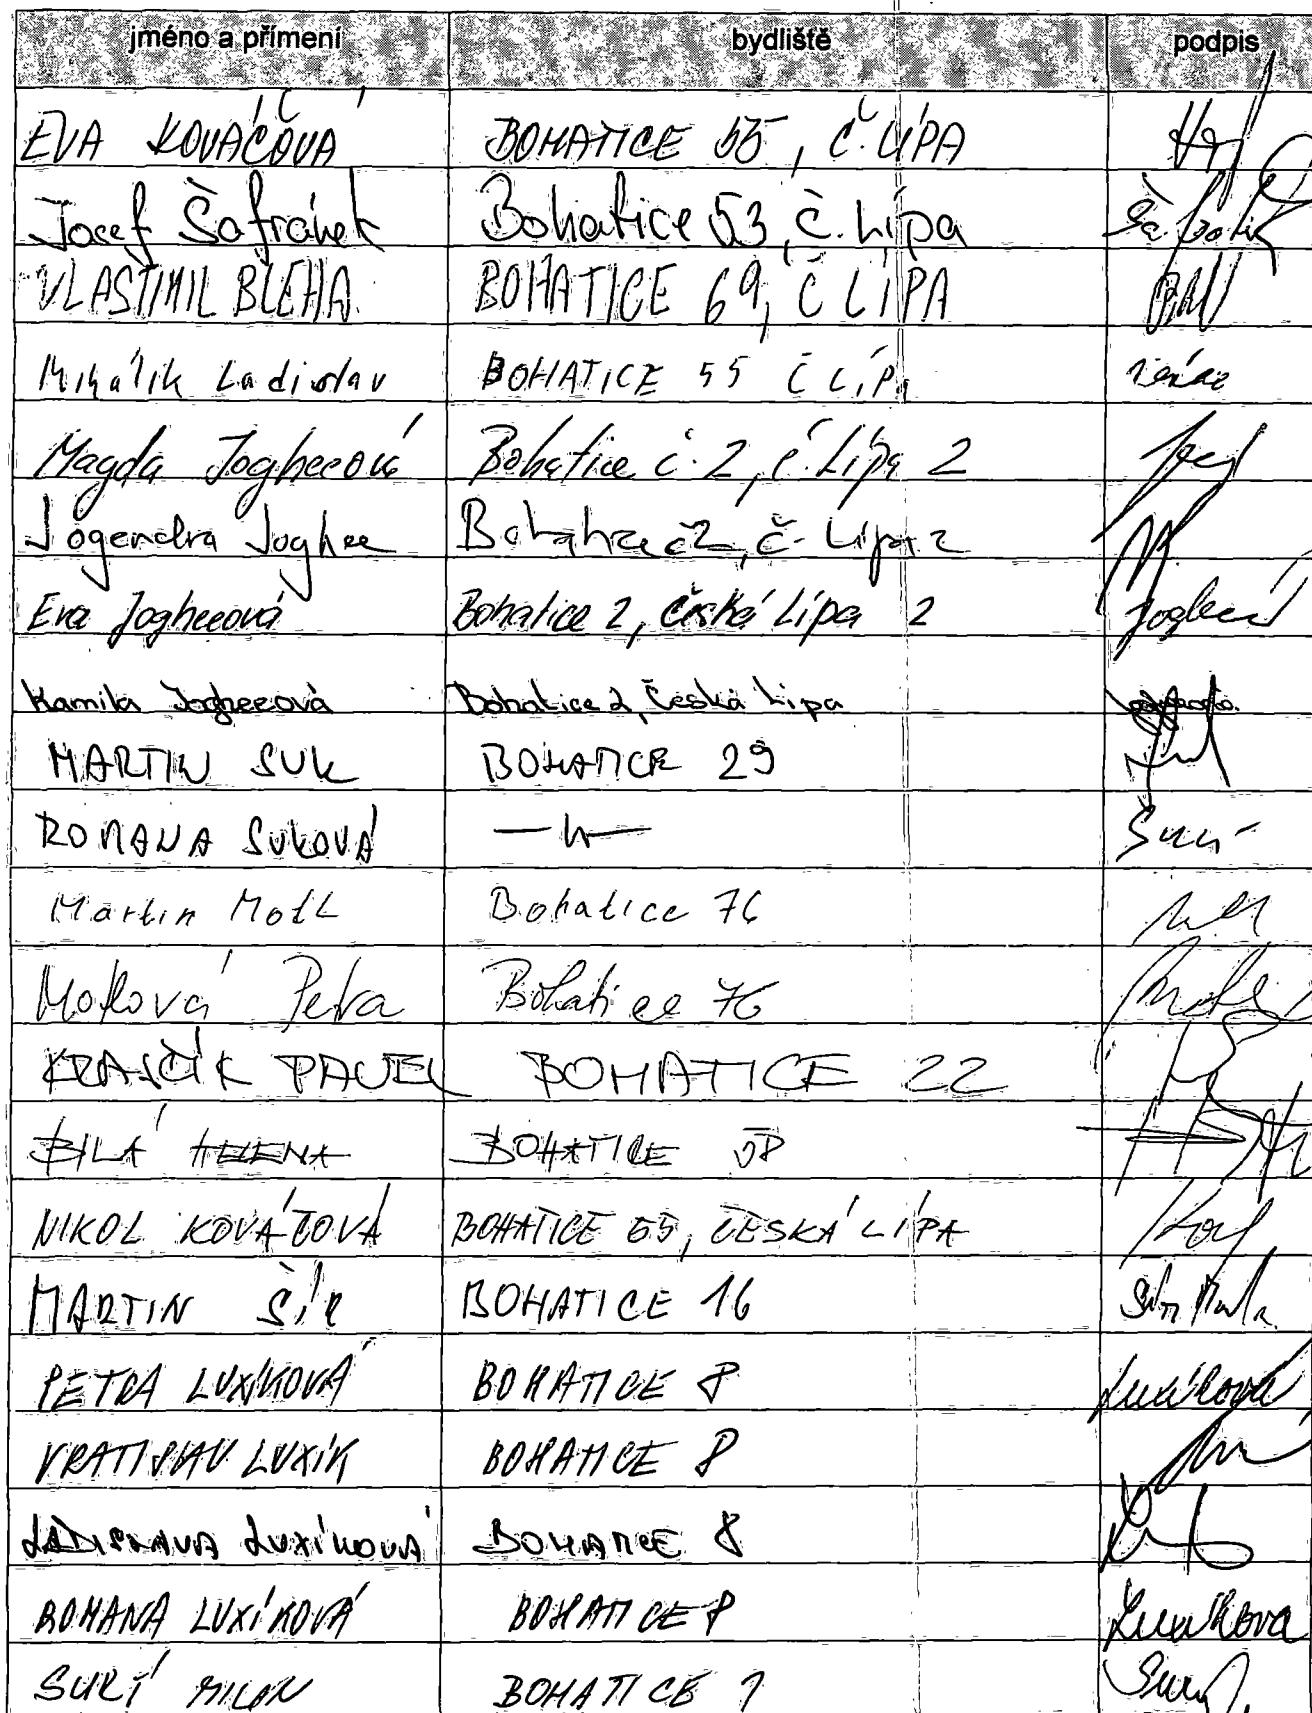 jméno a přímení bydliště podpis
EVA KOVÁČOVÁ BOHATICE 55, Č. LÍPA
Josef Šafránek Bohatice 53, Č. Lípa
VLASTIMIL BLEHA BOHATICE 69, Č LÍPA
Mihálik Ladislav BOHATICE 55 Č LÍPA
Magda Jogheeová Bohatice č. 2, Č. Lípa 2
Jogendra Joghee Bohatice č2, Č. Lípa 2
Eva Jogheeová Bohatice 2, Česká Lípa 2 Jogheeová
Kamila Jogheeová Bohatice 2, Česká Lípa
MARTIN SUK BOHATICE 29
ROMANA SUKOVÁ —"—
Martin Motl Bohatice 76
Motlová Petra Bohatice 76
KRAJČÍK PAVEL BOHATICE 22
BÍLÁ BOHATICE
NIKOL KOVÁČOVÁ BOHATICE 55, ČESKÁ LÍPA
MARTIN ŠÍR BOHATICE 16
PETRA LUXÍKOVÁ BOHATICE 8 Luxíková
VRATISLAV LUXÍK BOHATICE 8
LADISLAVA LUXÍKOVÁ BOHATICE 8
ROMANA LUXÍKOVÁ BOHATICE 8 Luxíkova
SURÝ MILAN BOHATICE